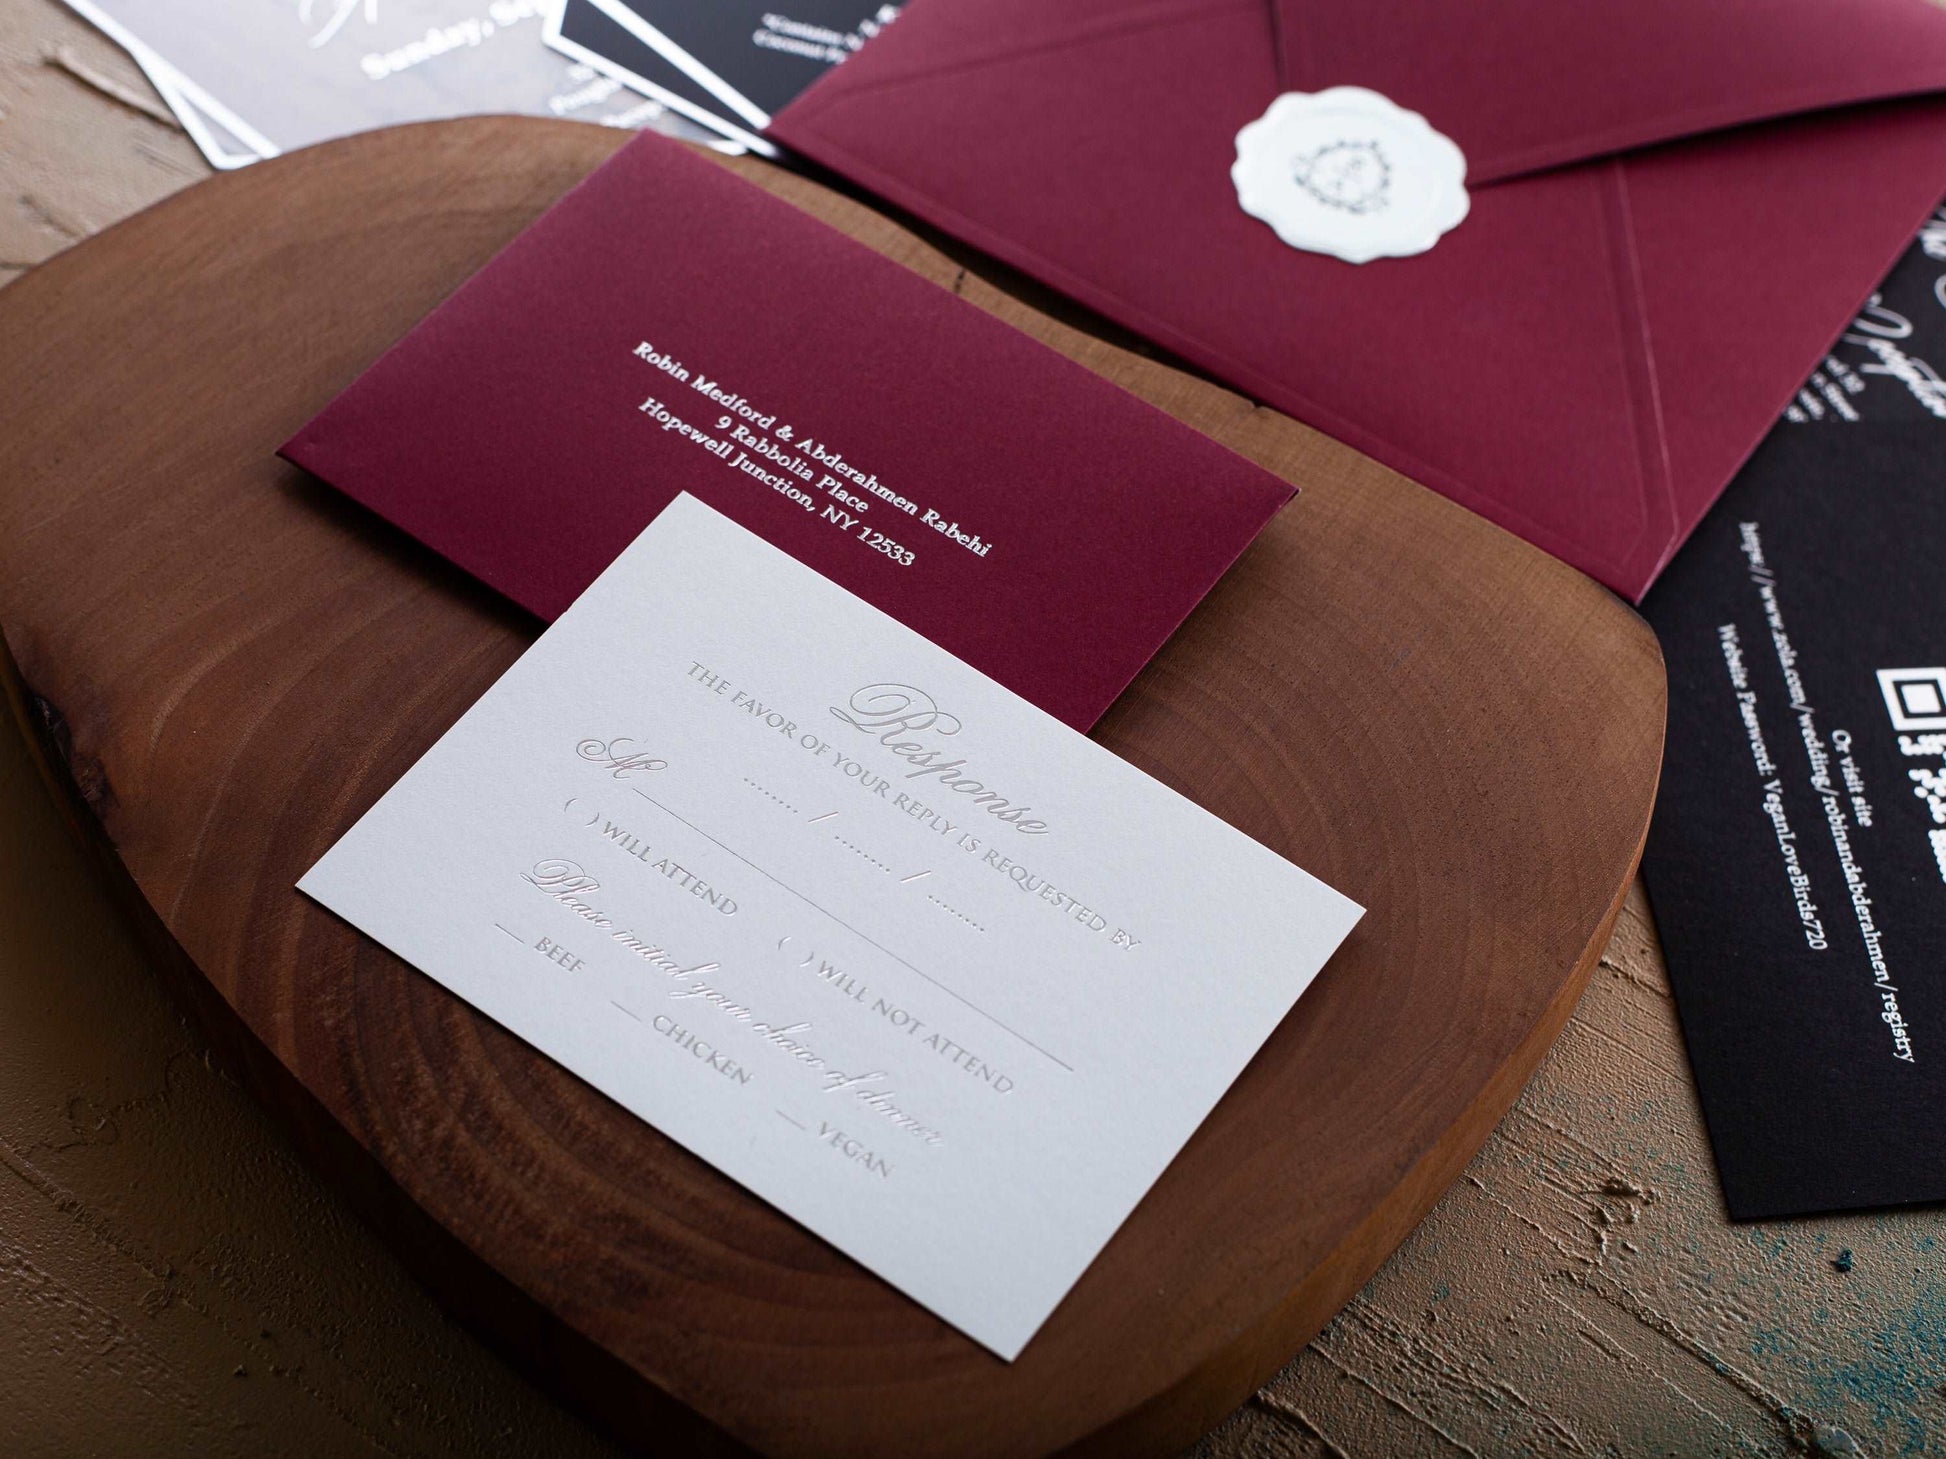 Sunday,
Robin Medford & Abderahmen Rabehi
9 Rabbolia Place
Hopewell Junction, NY 12533
Response
THE FAVOR OF YOUR REPLY IS REQUESTED BY
........ / ......... / .........
M
( ) WILL ATTEND ( ) WILL NOT ATTEND
Please initial your choice of dinner
__ BEEF __ CHICKEN __ VEGAN
Or visit site
https://www.zola.com/wedding/robinandabderahmen/registry
Website Password: VeganLoveBirds720